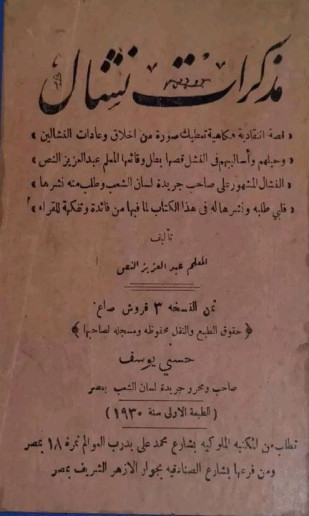 مذكرات نشال
« قصة انتقادية فكاهية تعطيك صورة من اخلاق وعادات النشالين »
« وحيلهم وأساليبهم فى النشل قصها بطل وقائعها المعلم عبد العزيز النص »
« النشال المشهور على صاحب جريدة لسان الشعب وطلب منه نشرها »
« فلبى طلبه ونشرها له فى هذا الكتاب لما فيها من فائدة وتفكهة للقراء »
تأليف
المعلم عبد العزيز النص
ثمن النسخه ٣ قروش صاغ
﴿ حقوق الطبع والنقل محفوظه ومسجله لصاحبها ﴾
حسنى يوسف
صاحب ومحرر جريدة لسان الشعب بمصر
( الطبعة الاولى سنة ١٩٣٠ )
تطلب من المكتبه الملوكيه بشارع محمد على بدرب العوالم نمرة ١٨ بمصر
ومن فرعها بشارع الصنادقيه بجوار الازهر الشريف بمصر